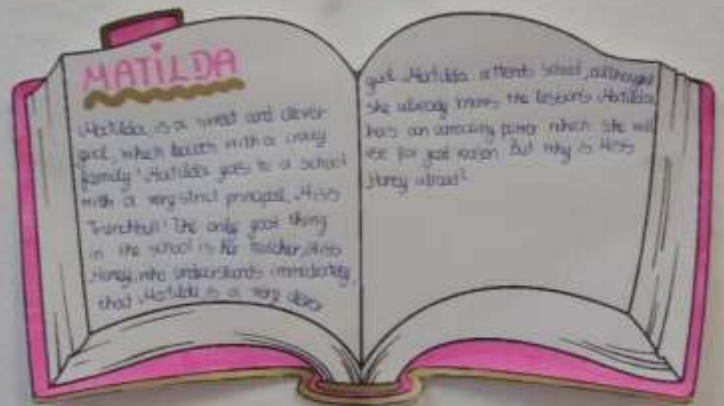 MATILDA
Matilda is a sweet and clever
girl, which with a crazy
family! Matilda goes to a school
with a very strict principal, Miss
Trunchbull! The only good thing
in the school is her teacher, Miss
Honey, who understands immediately,
that Matilda is a very clever
girl. Matilda attends school, although
she already knows the lessons. Matilda
has an amazing power which she will
use for good reason. But why is Miss
Honey afraid?